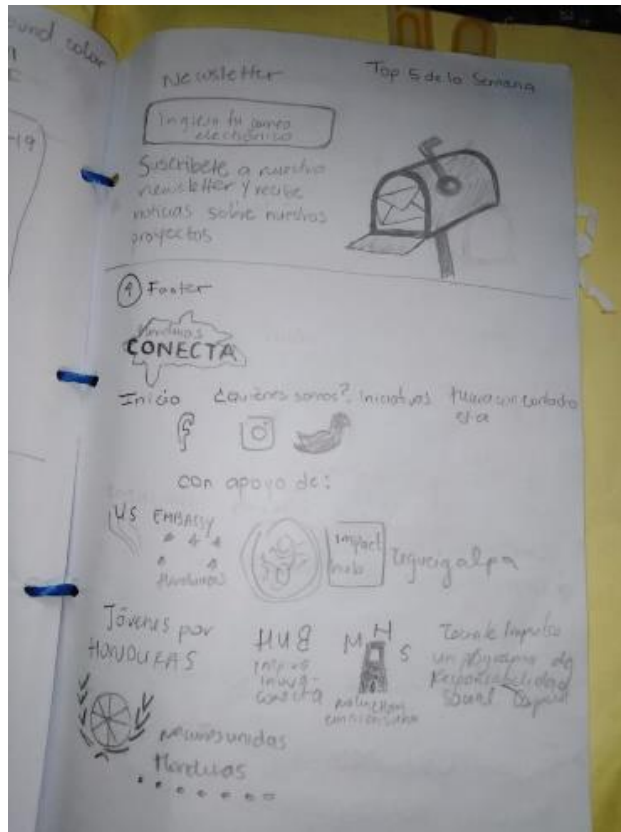 und color
19
Newsletter
Top 5 de la Semana
Ingresa tu correo
electrónico
Suscribete a nuestro
newsletter y recibe
noticias sobre nuestros
proyectos
9 Footer
Honduras
CONECTA
Inicio ¿Quiénes somos? Iniciativas
con apoyo de:
US EMBASSY
Honduras
Impact
Hub
Tegucigalpa
Jóvenes por
HONDURAS
HUB
conecta
M H S
un programa de
Responsabilidad
Social
Naciones unidas
Honduras